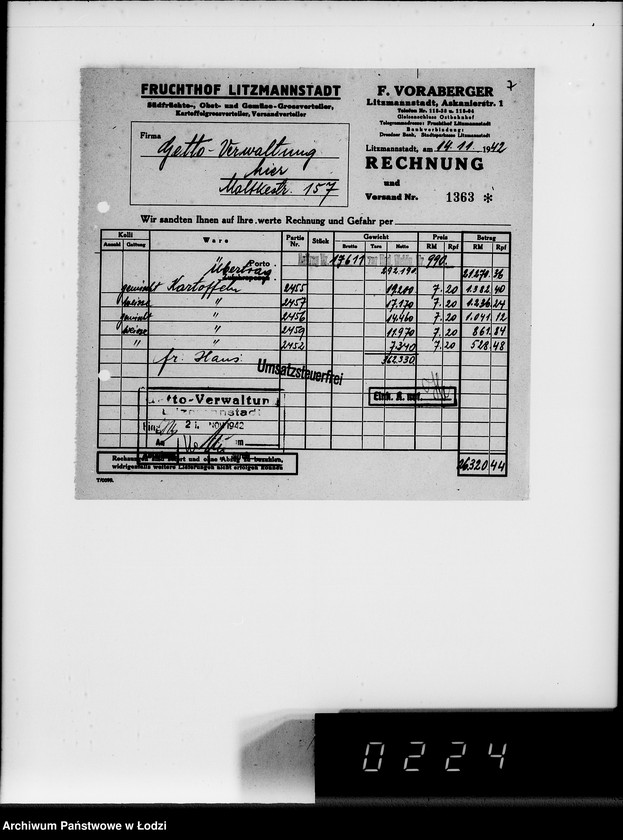 7
FRUCHTHOF LITZMANNSTADT
Südfrüchte-, Obst- und Gemüse-Grossverteiler,
Kartoffelgrossverteiler, Versandverteiler
F. VORABERGER
Litzmannstadt, Askanierstr. 1
Telefon Nr. 118-38 u. 118-94
Gleisanschluss Ostbahnhof
Telegrammadresse: Fruchthof Litzmannstadt
Bankverbindung:
Dresdner Bank, Stadtsparkasse Litzmannstadt
Firma
Getto-Verwaltung
hier
Moltkestr. 157
Litzmannstadt, am 14.11. 1942
RECHNUNG
und
Versand Nr. 1363 *
Wir sandten Ihnen auf Ihre werte Rechnung und Gefahr per
Kolli Ware Partie Nr. Stück Gewicht Preis Betrag
Anzahl Gattung Brutto Tara Netto RM Rpf RM Rpf
Porto 17611 990.
Übertrag 292.190 21.270.36
gemischt Kartoffeln 2455 19200 7.20 1.382.40
weisse " 2457 17.170 7.20 1.236.24
gemischt " 2456 14.460 7.20 1.041.12
weisse " 2459 11.970 7.20 861.84
" " 2452 7.340 7.20 528.48
fr. Haus 362330
Umsatzsteuerfrei
Getto-Verwaltung
Litzmannstadt
Eing. 21. NOV. 1942
Rechnungen sind sofort und ohne Abzug zu bezahlen,
widrigenfalls weitere Lieferungen nicht erfolgen können
26.320.44
T/0398.
0224
Archiwum Państwowe w Łodzi